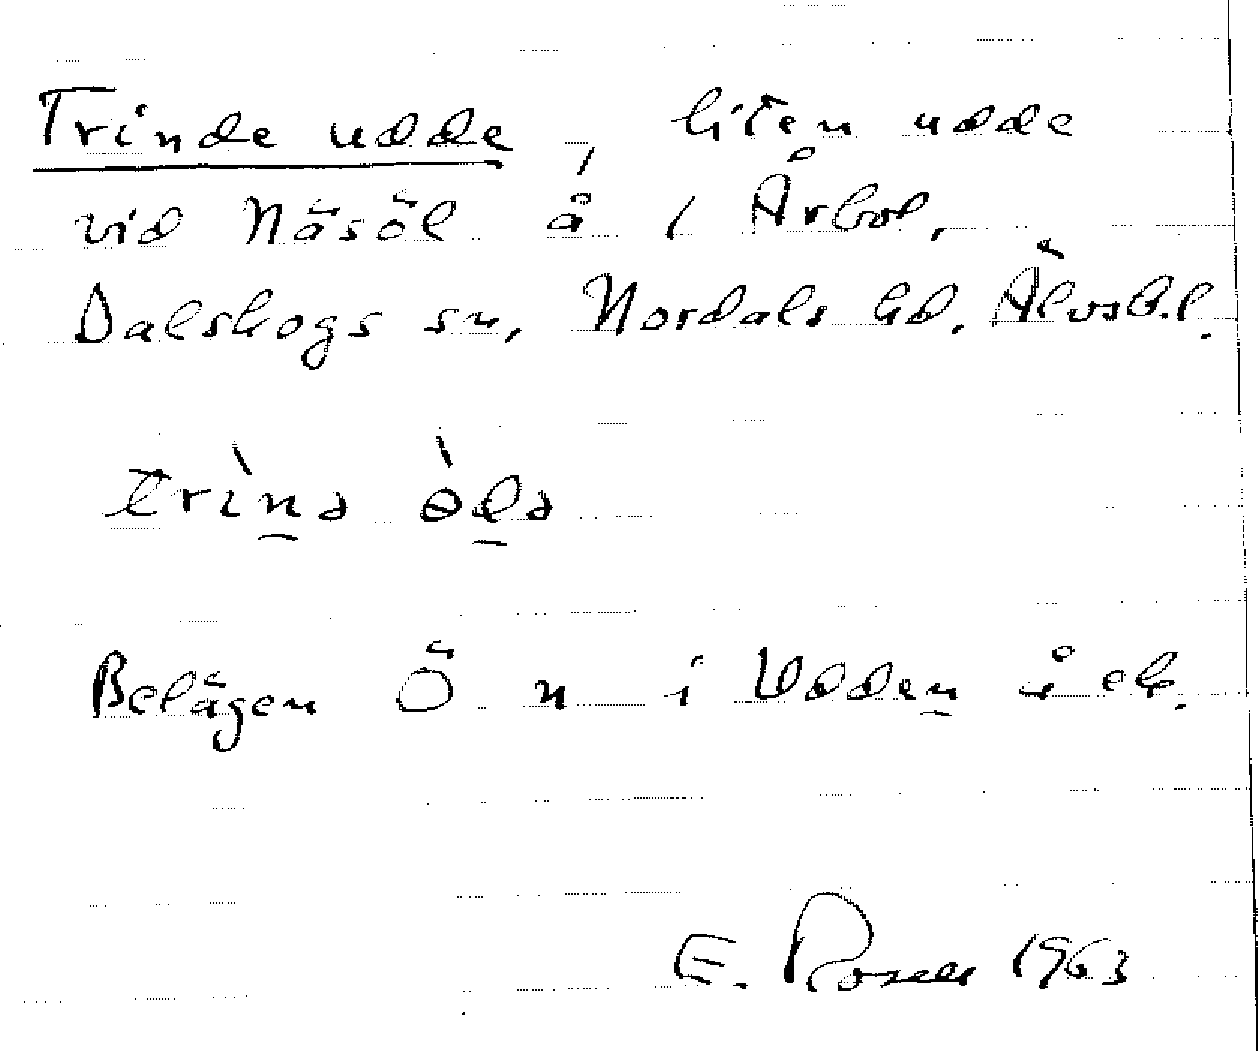 Trinde udde, liten udde
vid Näsöl å i Årbol,
Dalskogs sn, Nordals hd. Älvsb.l.
trìnə òdə
Belägen Ö n i Udden å ek.
E. Rosell 1963